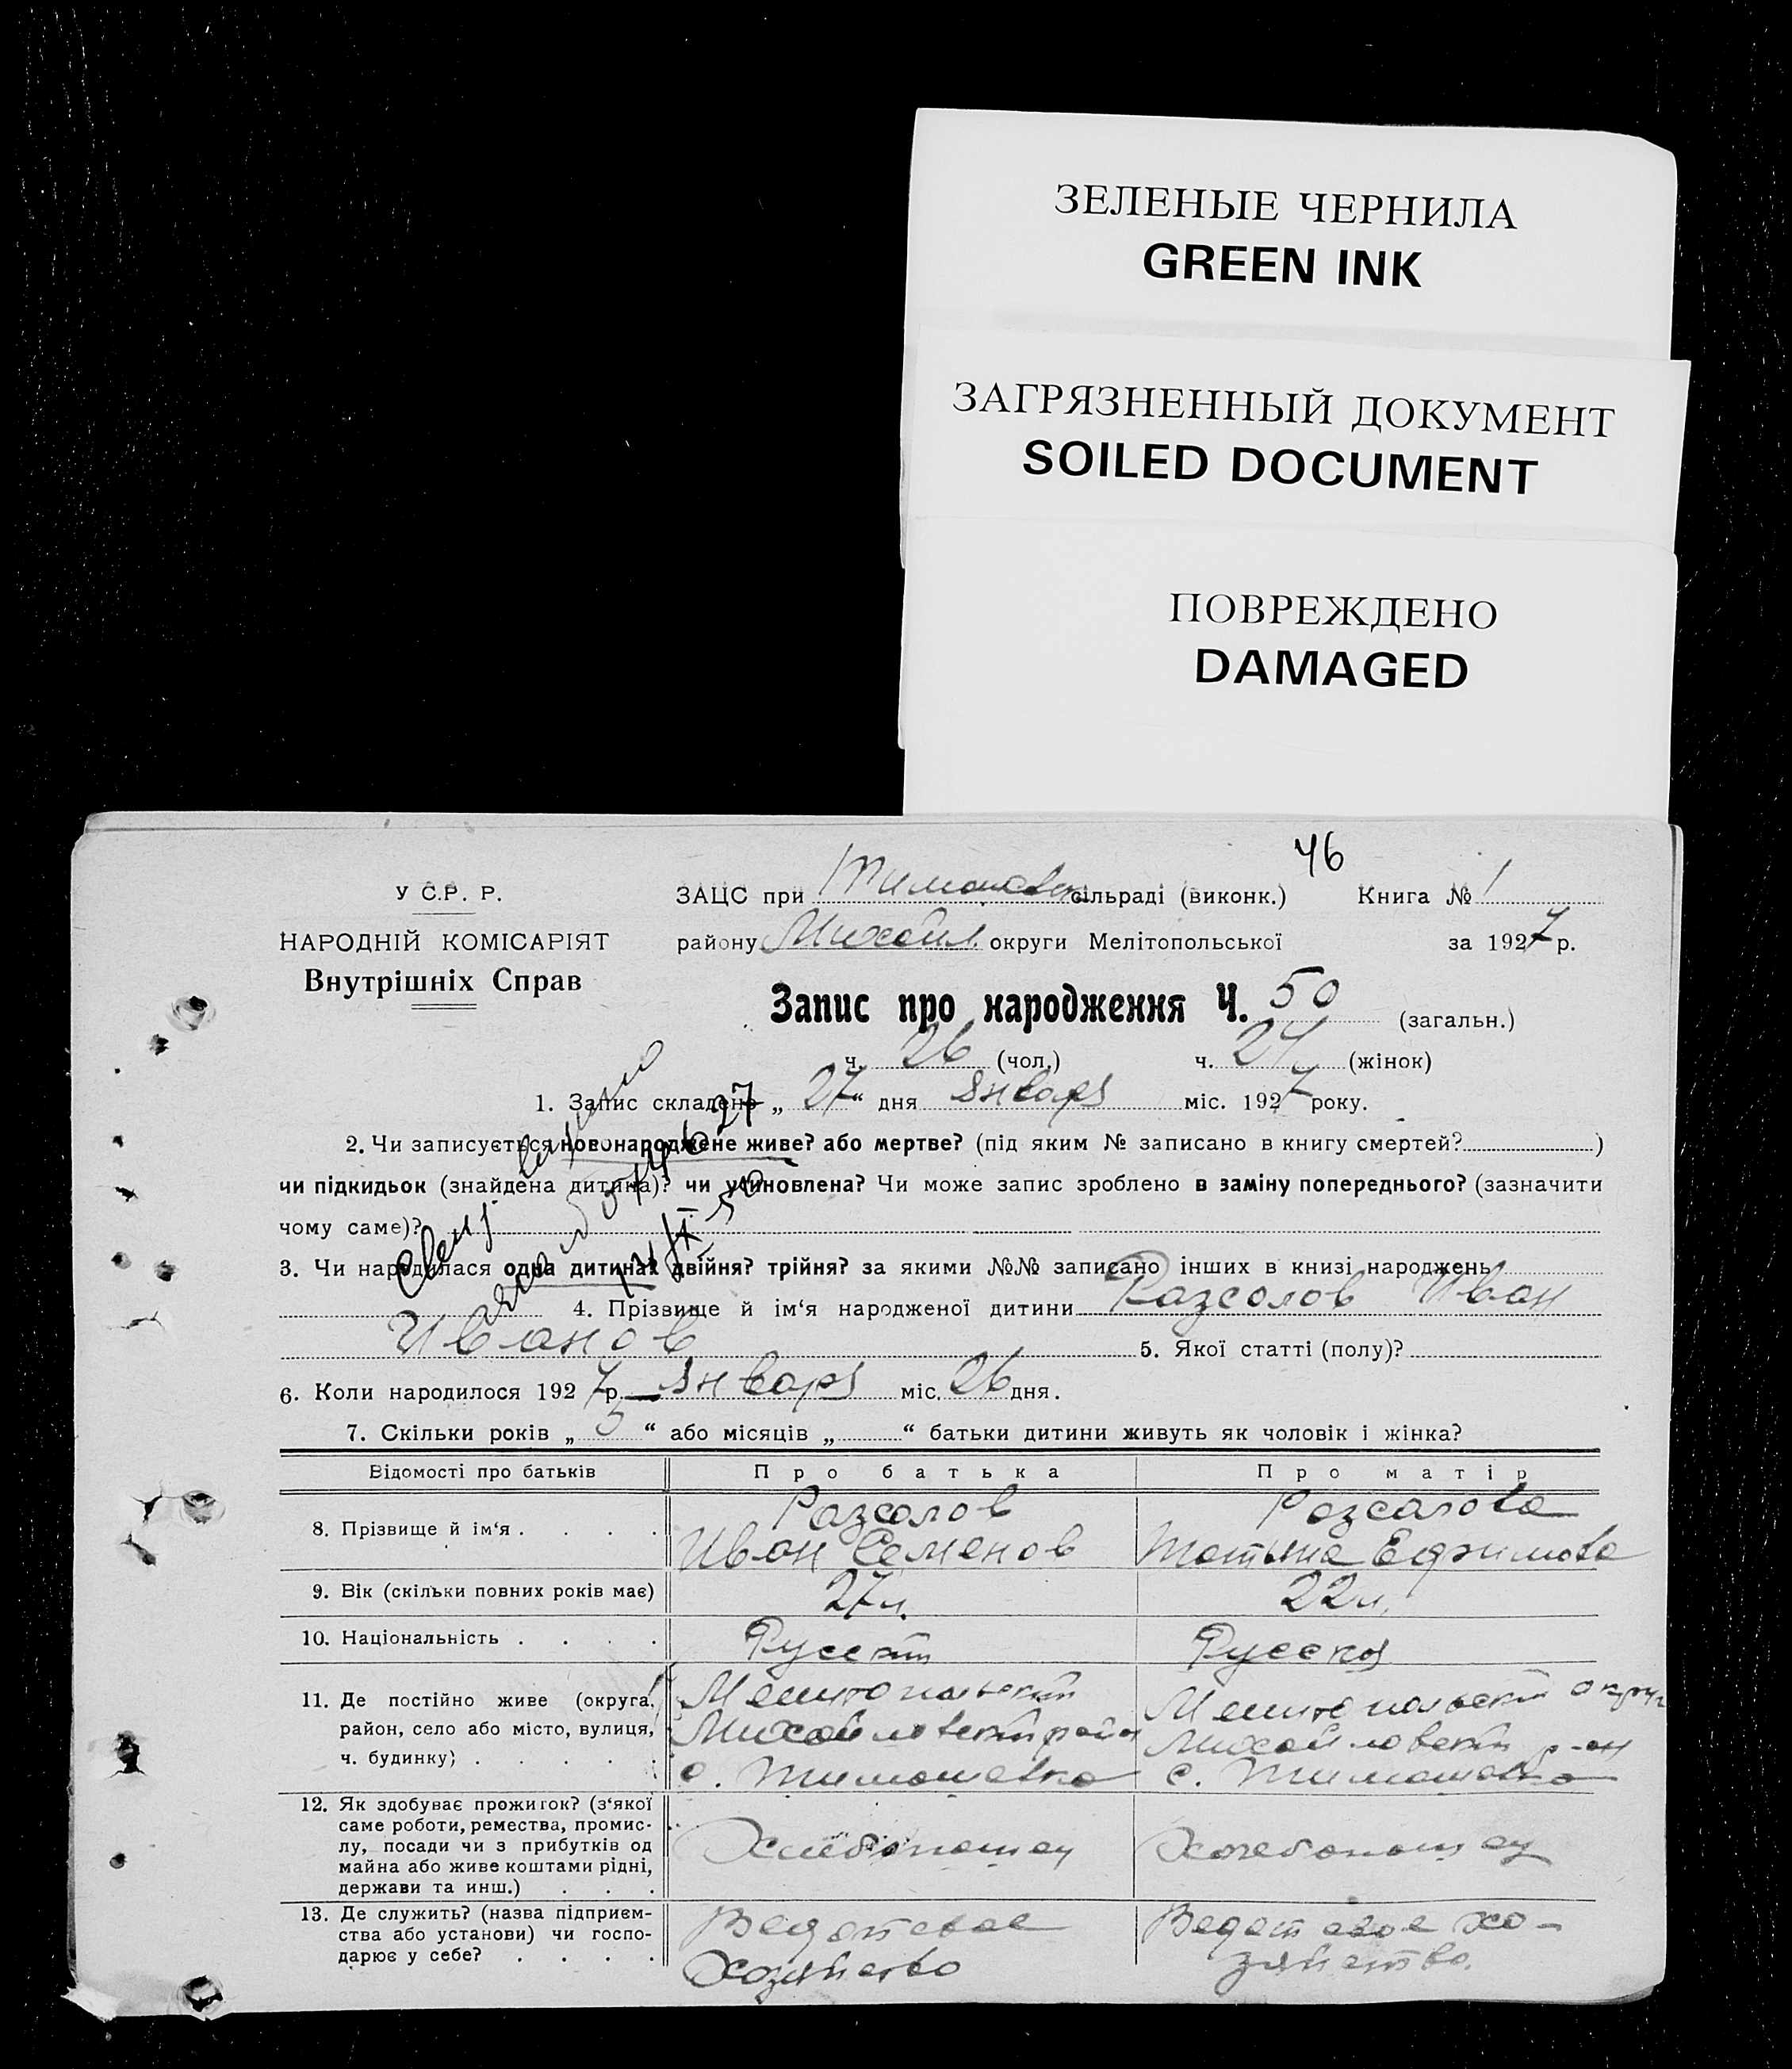 ЗЕЛЕНЫЕ ЧЕРНИЛА
GREEN INK
ЗАГРЯЗНЕННЫЙ ДОКУМЕНТ
SOILED DOCUMENT
ПОВРЕЖДЕНО
DAMAGED
46
У С.Р. Р.
НАРОДНІЙ КОМІСАРІЯТ
Внутрішніх Справ
ЗАЦС при Тимошевск сільраді (виконк.) Книга № 1
району Михайл. округи Мелітопольської за 1927 р.
Запис про народження Ч. 50 (загальн.)
ч. 26 (чол.) ч. 24 (жінок)
1. Запис складено „ 27 “ дня января міс. 1927 року.
2. Чи записується новонароджене живе? або мертве? (під яким № записано в книгу смертей? )
чи підкидьок (знайдена дитина)? чи усиновлена? Чи може запис зроблено в заміну попереднього? (зазначити
чому саме)?
3. Чи народилася одна дитина? двійня? трійня? за якими №№ записано інших в книзі народжень
4. Прізвище й ім‘я народженої дитини Разсолов Иван
Иванов 5. Якої статті (полу)?
6. Коли народилося 1927 р. января міс. 26 дня.
7. Скільки років „ 5 “ або місяців „ “ батьки дитини живуть як чоловік і жінка?
Відомості про батьків Про батька Про матір
8. Прізвище й ім‘я . . . . Разсолов Разсалова
Иван Семенов Татьяна Ефимова
9. Вік (скільки повних років має) 27 л. 22 л.
10. Національність . . . . Русский Русская
11. Де постійно живе (округа, Мелитопольский Мелитопольский округ
район, село або місто, вулиця, Михайловский район Михайловский р-он
ч. будинку) . . . . . с. Тимошевка с. Тимошевка
12. Як здобуває прожиток? (з‘якої
саме роботи, ремества, промис-
лу, посади чи з прибутків од Хлебопашец Хлебопашец
майна або живе коштами рідні,
держави та инш.) . . .
13. Де служить? (назва підприєм-
ства або установи) чи госпо-
дарює у себе? . . . .
Хозяйство хо-
зяйство.